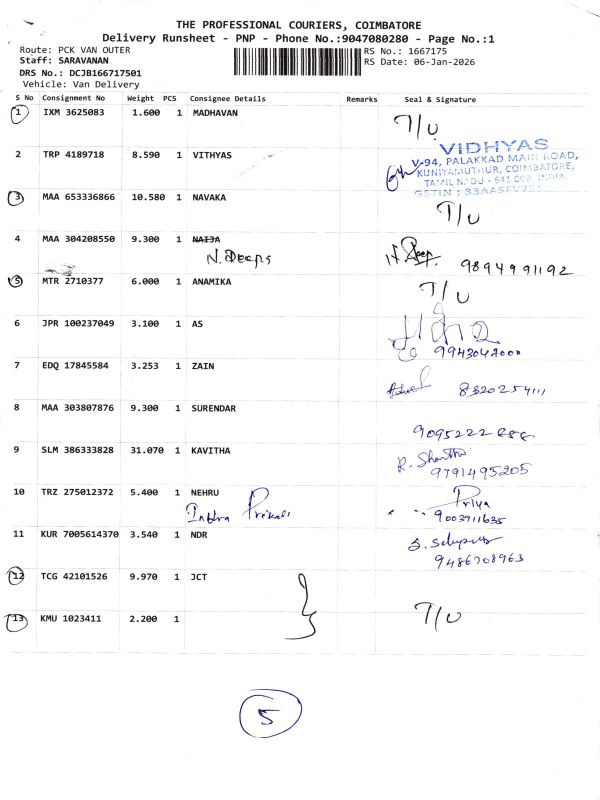 THE PROFESSIONAL COURIERS, COIMBATORE
Delivery Runsheet - PNP - Phone No.:9047080280 - Page No.:1
Route: PCK VAN OUTER
Staff: SARAVANAN
DRS No.: DCJB166717501
Vehicle: Van Delivery
RS No.: 1667175
RS Date: 06-Jan-2026
S No Consignment No Weight PCS Consignee Details Remarks Seal & Signature
1 IXM 3625083 1.600 1 MADHAVAN T/U
2 TRP 4189718 8.590 1 VITHYAS
VIDHYAS
V-94, PALAKKAD MAIN ROAD,
KUNIYAMUTHUR, COIMBATORE,
TAMIL NADU - 641 008, INDIA.
GSTIN : 33AASFV
3 MAA 653336866 10.580 1 NAVAKA T/U
4 MAA 304208550 9.300 1 NAIJA
N. Deepa N. Deep. 9894991192
5 MTR 2710377 6.000 1 ANAMIKA T/U
6 JPR 100237049 3.100 1 AS
9943047000
7 EDQ 17845584 3.253 1 ZAIN
8320254111
8 MAA 303807876 9.300 1 SURENDAR
9095222
9 SLM 386333828 31.070 1 KAVITHA R. Shanthi
9791495205
10 TRZ 275012372 5.400 1 NEHRU Priya
9003711635
11 KUR 7005614370 3.540 1 NDR
9486708963
12 TCG 42101526 9.970 1 JCT
13 KMU 1023411 2.200 1 T/U
5